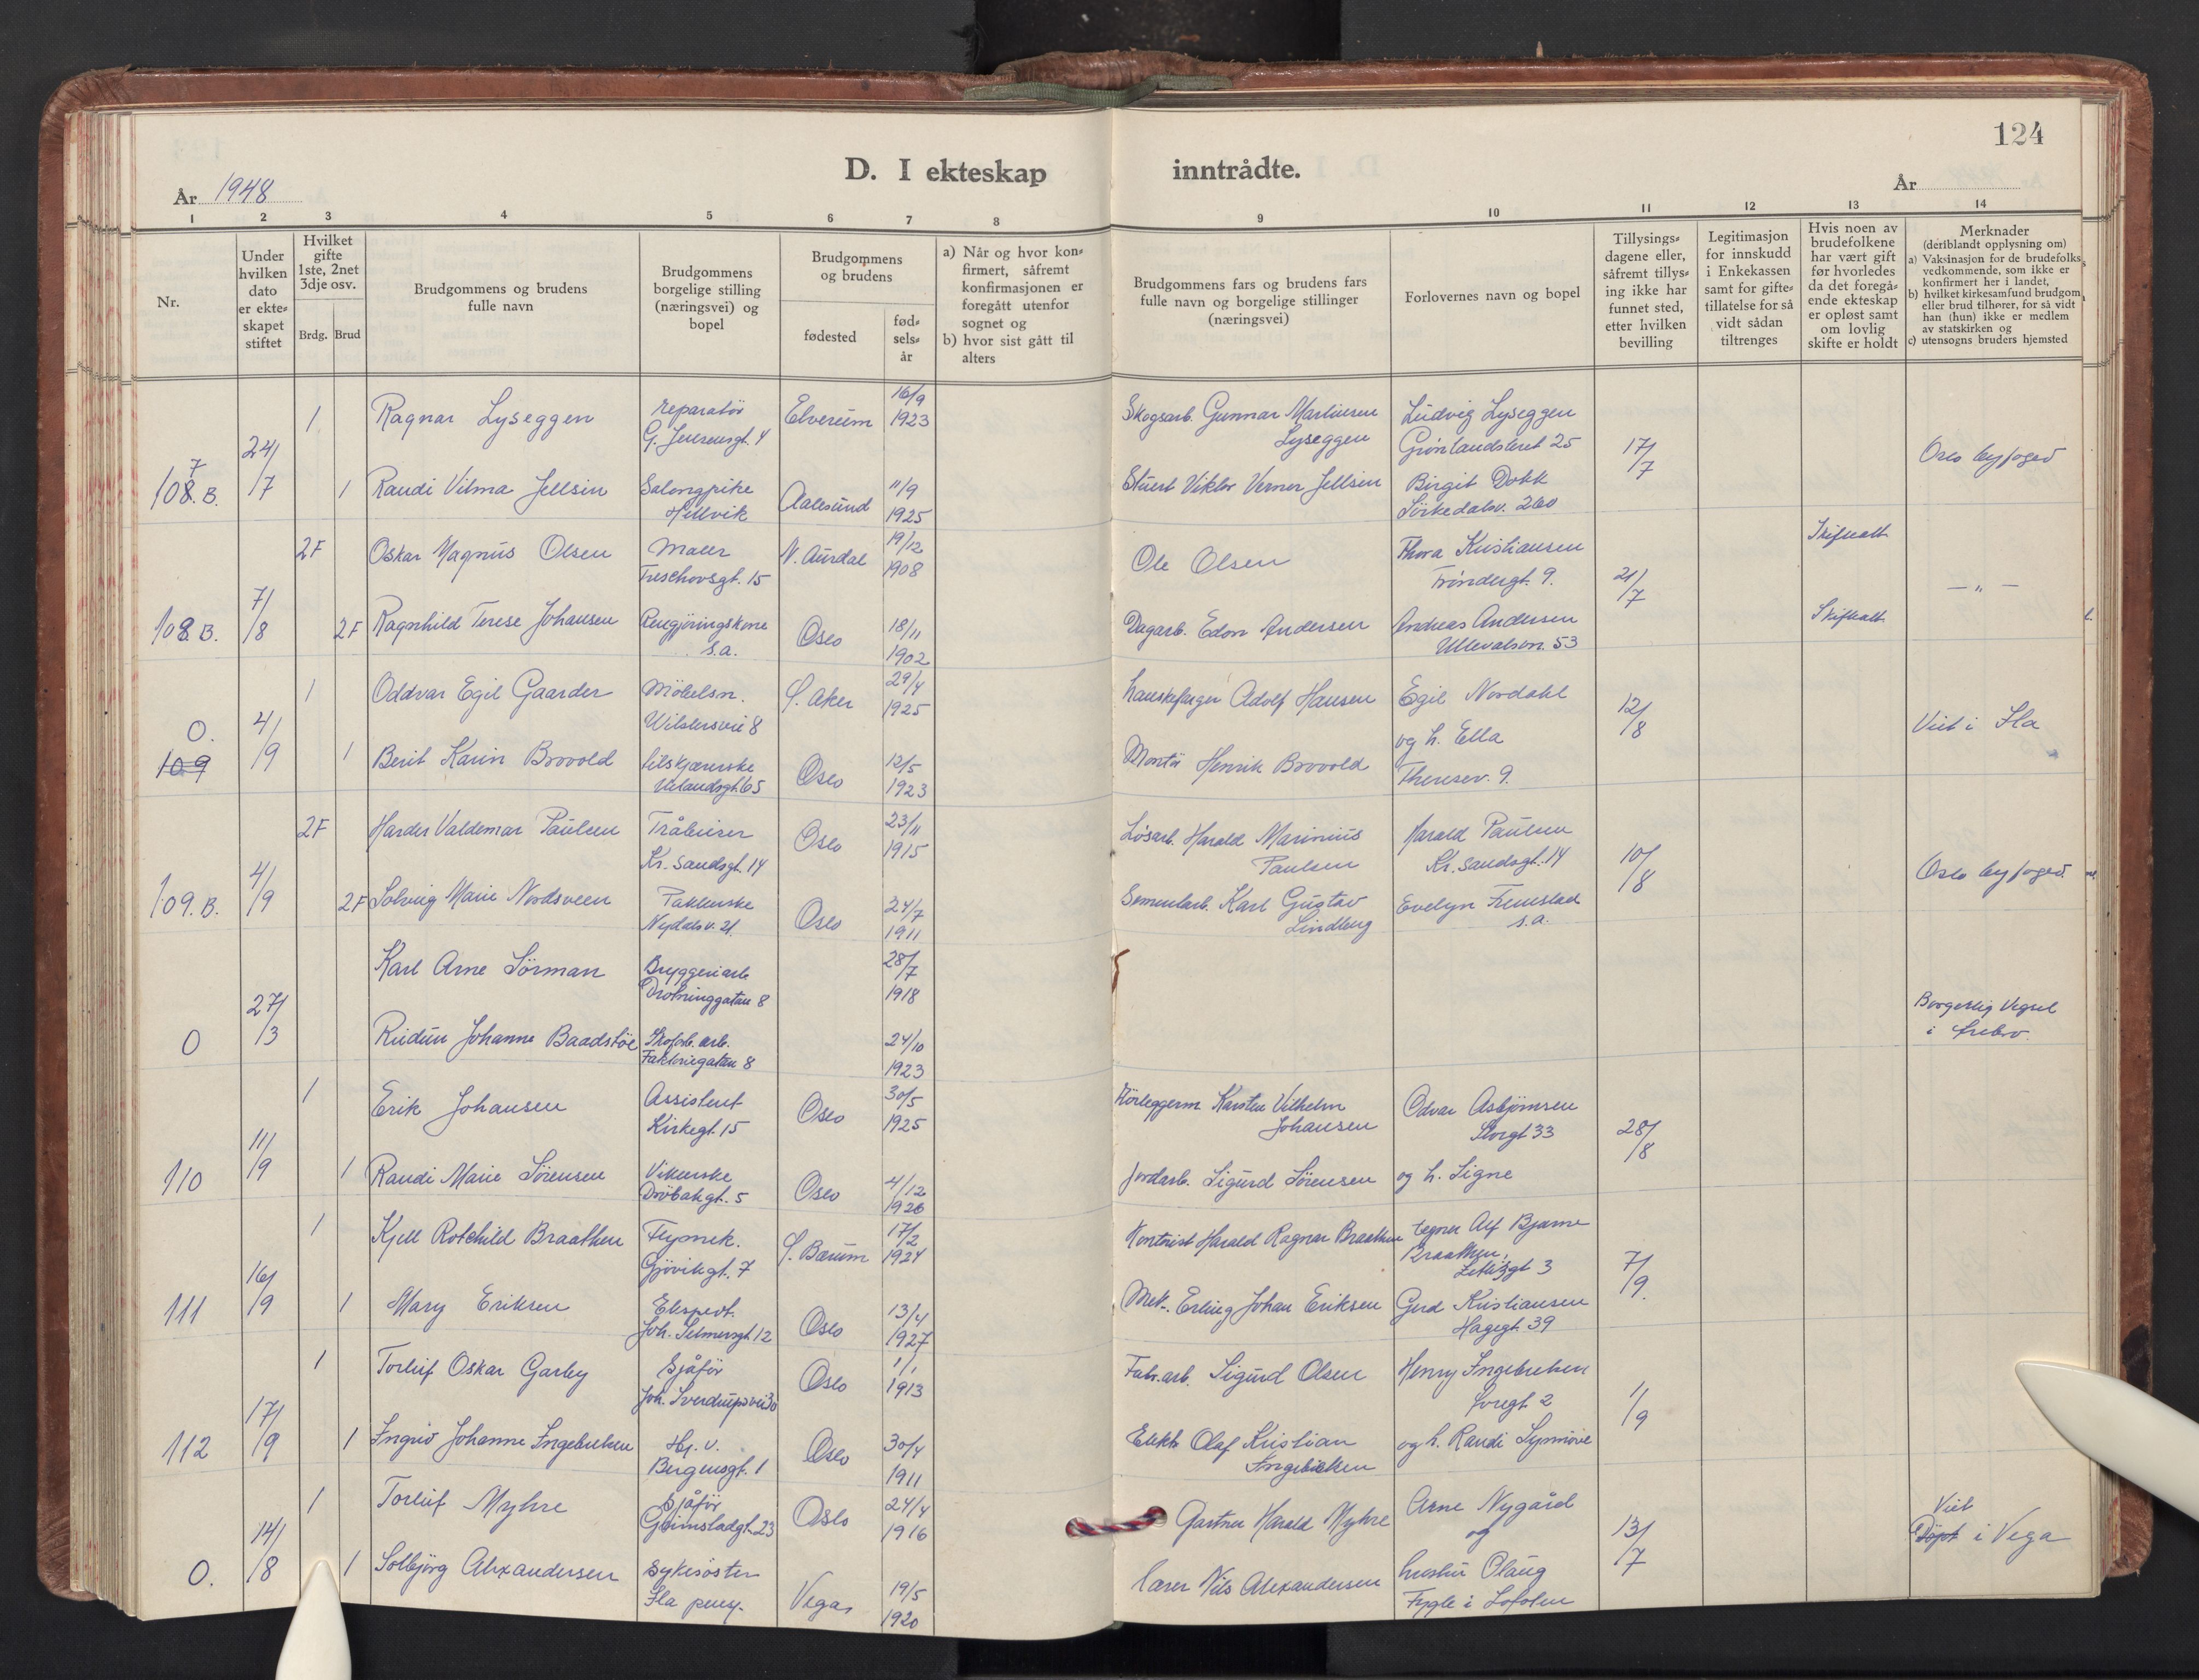 124
D. I ekteskap inntrådte.
År 1948
År
1 2 3 4 5 6 7 8 9 10 11 12 13 14
Nr.
Under
hvilken
dato
er ekte-
skapet
stiftet
Hvilket
gifte
1ste, 2net
3dje osv.
Brdg. Brud
Brudgommens og brudens
fulle navn
Brudgommens
borgelige stilling
(næringsvei) og
bopel
Brudgommens
og brudens
fødested
fød-
sels-
år
a) Når og hvor kon-
firmert, såfremt
konfirmasjonen er
foregått utenfor
sognet og
b) hvor sist gått til
alters
Brudgommens fars og brudens fars
fulle navn og borgelige stillinger
(næringsvei)
Forlovernes navn og bopel
Tillysings-
dagene eller,
såfremt tillys-
ing ikke har
funnet sted,
etter hvilken
bevilling
Legitimasjon
for innskudd
i Enkekassen
samt for gifte-
tillatelse for så
vidt sådan
tiltrenges
Hvis noen av
brudefolkene
har vært gift
før hvorledes
da det foregå-
ende ekteskap
er opløst samt
om lovlig
skifte er holdt
Merknader
(deriblandt opplysning om)
a) Vaksinasjon for de brudefolks
vedkommende, som ikke er
konfirmert her i landet,
b) hvilket kirkesamfund brudgom
eller brud tilhører, for så vidt
han (hun) ikke er medlem
av statskirken og
c) utensogns bruders hjemsted
7
108. B. 24/7
1 Ragnar Lyseggen reparatör Elverum 16/9
G. Jensensgt. 4 1923
Skogsarb. Gunnar Martinsen
Lyseggen
Ludvig Lyseggen
Grönlandsleret 25
17/7
Oslo byfoged
1 Randi Vilma Jellsin Salongpike Aalesund 11/9
Hellvik 1925
Stuert Viktor Verner Jellsin
Birgit Dokk
Sörkedalsv. 260
108 B. 7/8
2F Oskar Magnus Olsen Maler N. Aurdal 19/12
Treschovsgt. 15 1908
Ole Olsen
Thora Kristiansen
Tröndergt. 9.
21/7
Skifteatt
— „ —
2F Ragnhild Terese Johansen Rengjöringskone Oslo 18/11
s.a. 1902
Dagarb. Edon Andersen
Andreas Andersen
Ullevalsvn. 53
Skifteatt
0.
109 4/9
1 Oddvar Egil Gaarder Möbelsn. Ö. Aker 29/4
Wilslersvei 8 1925
Hanskefarger Adolf Hansen
Egil Nordahl
og h. Ella
Theresev. 9.
12/8
Viet i Fla
1 Berit Karin Brovold Oslo 12/5
1923
Montör Henrik Brovold
109. B. 4/9
2F Harder Valdemar Paulsen Oslo 23/11
Kr. sandsgt. 14 1915
Lösarb. Harald Marinius
Paulsen
Harald Paulsen
Kr. sandsgt. 14
10/8
Oslo byfoged
2F Solveig Marie Nordsveen Pakkerske Oslo 24/7
Nydalsv. 21. 1911
Sementarb. Karl Gustav
Lindberg
Evelyn Fremstad
s.a.
0 27/3
Karl Arne Sörman Bryggeriarb 28/7
Drotninggatan 8 1918
Borgerlig Vigsel
i Örebro.
Ruidun Johanne Baadstöe Skofab. arb. 24/10
Faktorigatan 8 1923
110 11/9
1 Erik Johansen Assistent Oslo 30/5
Kirkegt. 15 1925
Rörleggerm Karsten Vilhelm
Johansen
Odvar Asbjörnsen
Storgt 33
28/8
1 Randi Marie Sörensen Viklerske Oslo 4/12
Dröbakgt. 5 1926
Jordarb. Sigurd Sörensen
og h. Signe
111 16/9
1 Kjell Rotchild Braathen Flymek. Ö. Bærum 17/2
Gjövikgt. 7 1924
Kontorist Harald Ragnar Braathen
tegner Alf Bjarne
Braathen,
7/9.
1 Mary Eriksen Ekspedt. Oslo 13/4
Joh. Selmersgt. 12 1927
Mek. Erling Johan Eriksen
Gerd Kristiansen
Hagegt. 39
112 17/9
1 Torleif Oskar Garby Sjåför Oslo 1/1
Joh. Sverdrupsvei 30 1913
Fabr.arb. Sigurd Olsen
Henry Ingebretsen
1/9
1 Ingrid Johanne Ingebretsen Hj. v. Oslo 30/4
Bergensgt. 1 1911
Elektr. Olaf Kristian
Ingebretsen
og h. Randi Synnöve
0. 14/8
1 Torleif Myhre Sjåför Oslo 24/4
Grimstadgt. 23 1916
Gartner Harald Myhre
Arne Nygård
og
hustru Olaug
Fygle i Lofoten
13/7
Viet
Döpt i Vega
1 Solbjörg Alexandersen Sykesöster Vega 19/5
Fla 1920
Lærer Nils Alexandersen